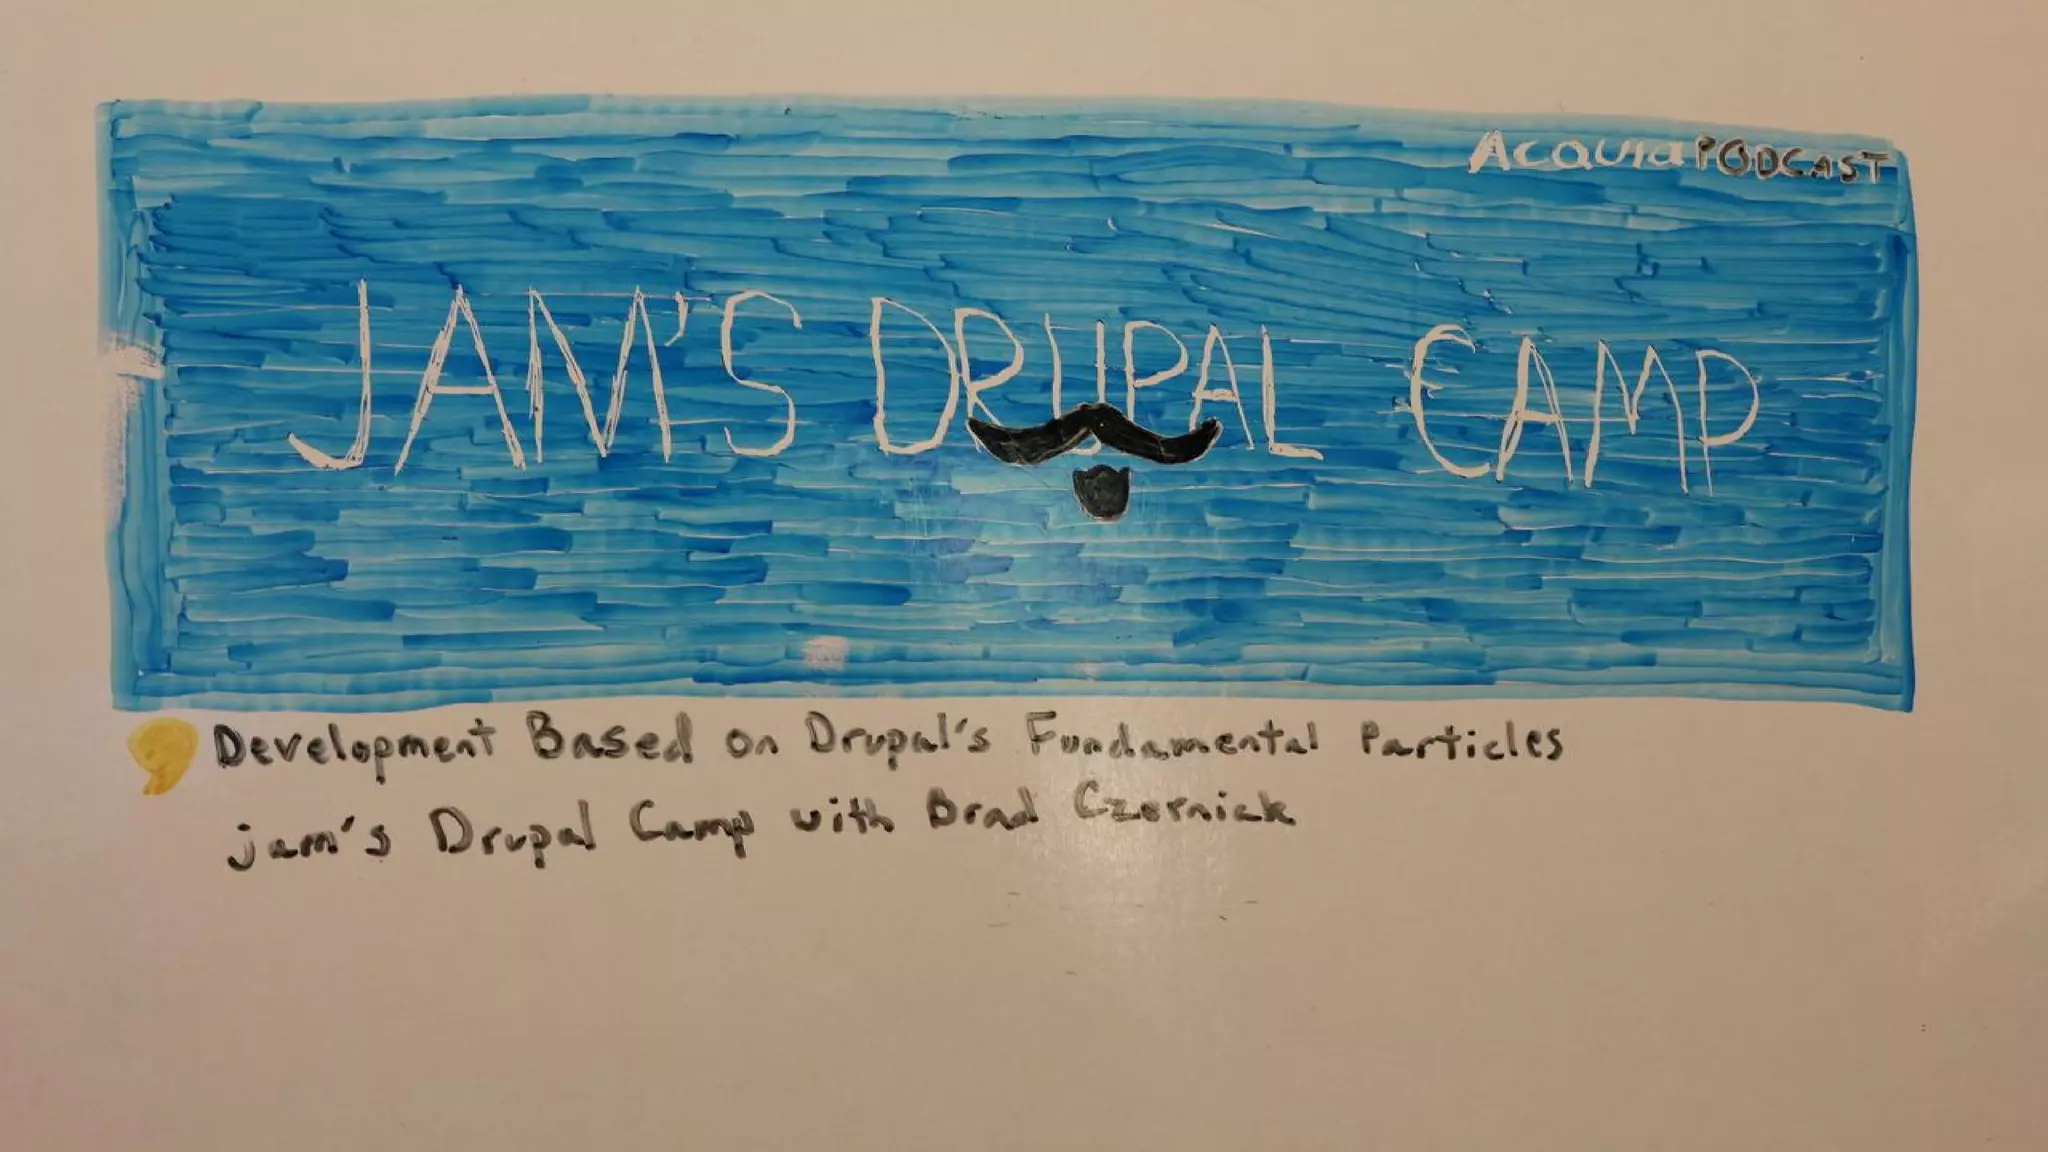 AcquiaPODCAST
JAM'S DRUPAL CAMP
Development Based on Drupal's Fundamental Particles
jam's Drupal Camp with Brad Czernick